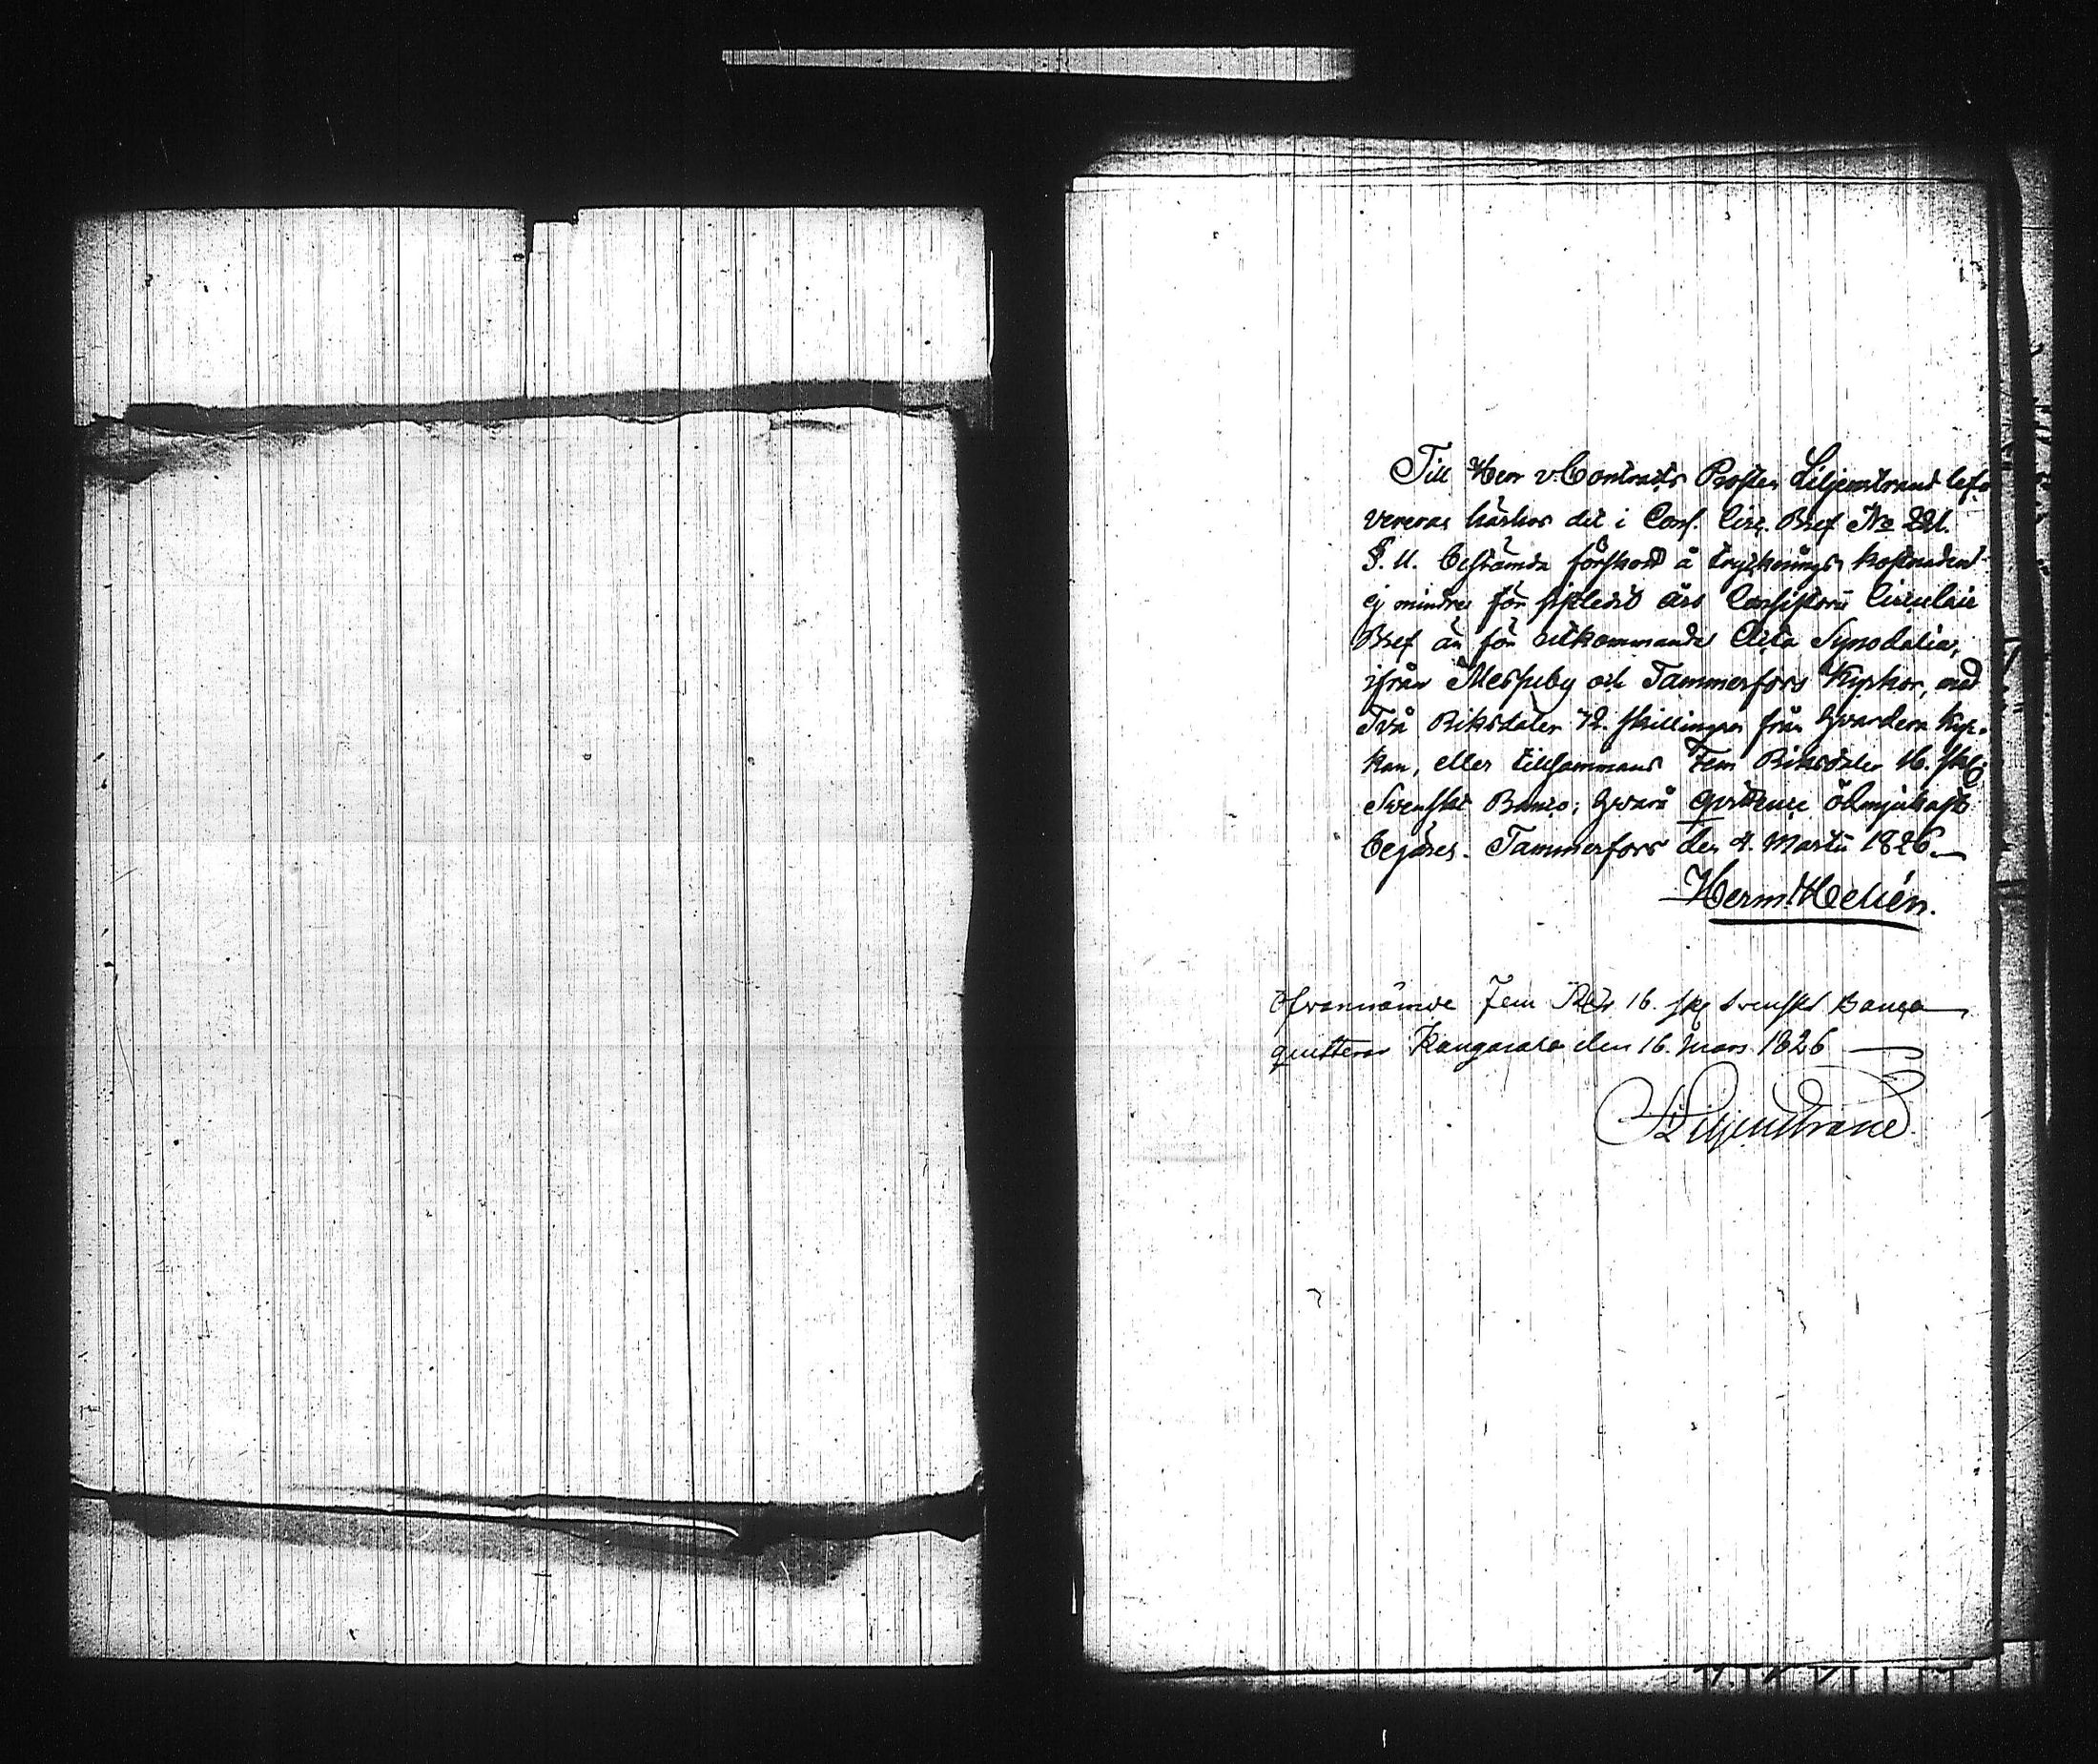 Till Herr v. Contracts Prosten Liljenstrand lef-
vereras härhos det i Cons. Circ. Bref No 221.
§. 11. bestämda förskott å trycknings kostnaden
ej mindre för sistledit års Consistorii Circulair
Bref än för utkommande Acta Synodalia,
ifrån Messuby och Tammerfors Kyrkor, med
Två Riksdaler 32. skillingar från hvardera Kyr-
kan, eller tillsammans Fem Riksdaler 16. sk
Svenskt Banco; hvarå qvittence ödmjukast
begäres. Tammerfors den 4. Martii 1826.
Herm. Helién.
Ofvannämde Fem Rdr 16. sk Svenskt Banco
quitteras Kangasala den 16. Mars 1826
Liljenstrand